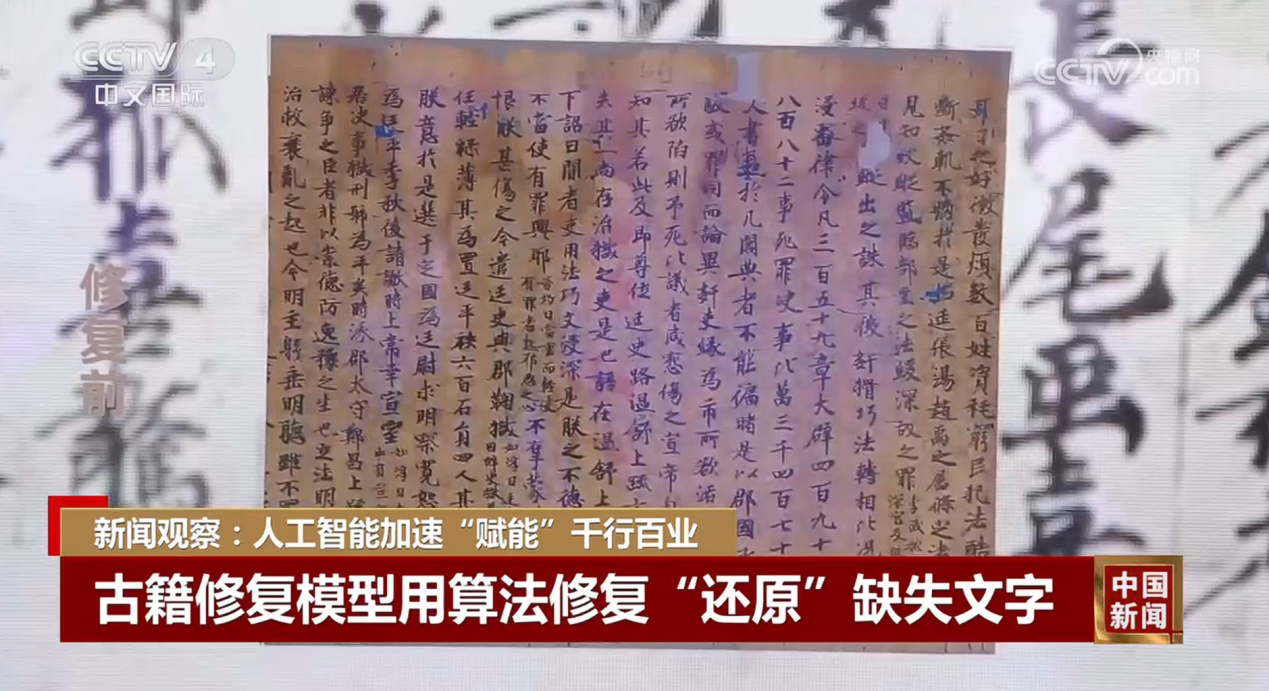 CCTV 4
中文国际
CCTV 央视网
com
修复前
耳目之好徵發煩數百姓貧耗窮民犯法酷
斷姦軌不勝於是招進張湯趙禹之屬條定法
見知故縱監臨部主之法緩深故之罪
縱出之誅其後奸猾巧法轉相比況
浸審律令凡三百五十九章大辟四百九十
八百八十二事死罪決事比萬三千四百七十
人書盈於几閣典者不能徧睹是以郡國
駮或罪同而論異奸吏緣為市所欲活
所欲陷則予死比議者咸怨傷之宣帝自
知其若此及即尊位廷史路溫舒上疏
失其一尚存治獄之吏是也語在溫舒上
下詔曰間者吏用法巧文浸深是朕之不德
不當使有罪興邪不辜蒙
恨朕甚傷之今遣廷史與郡鞫獄
任輕祿薄其為置廷平秩六百石員四人其
朕意於是選于定國為廷尉求明察寬恕
為廷平季秋後請讞時上常幸宣室
居決事獄刑號為平矣時涿郡太守鄭昌上
諫爭之臣者非以崇德防逸豫之生也立法明
治救衰亂之起也今明主躬垂明聽雖不
長尾單
新闻观察：人工智能加速“赋能”千行百业
古籍修复模型用算法修复“还原”缺失文字
中国
新闻